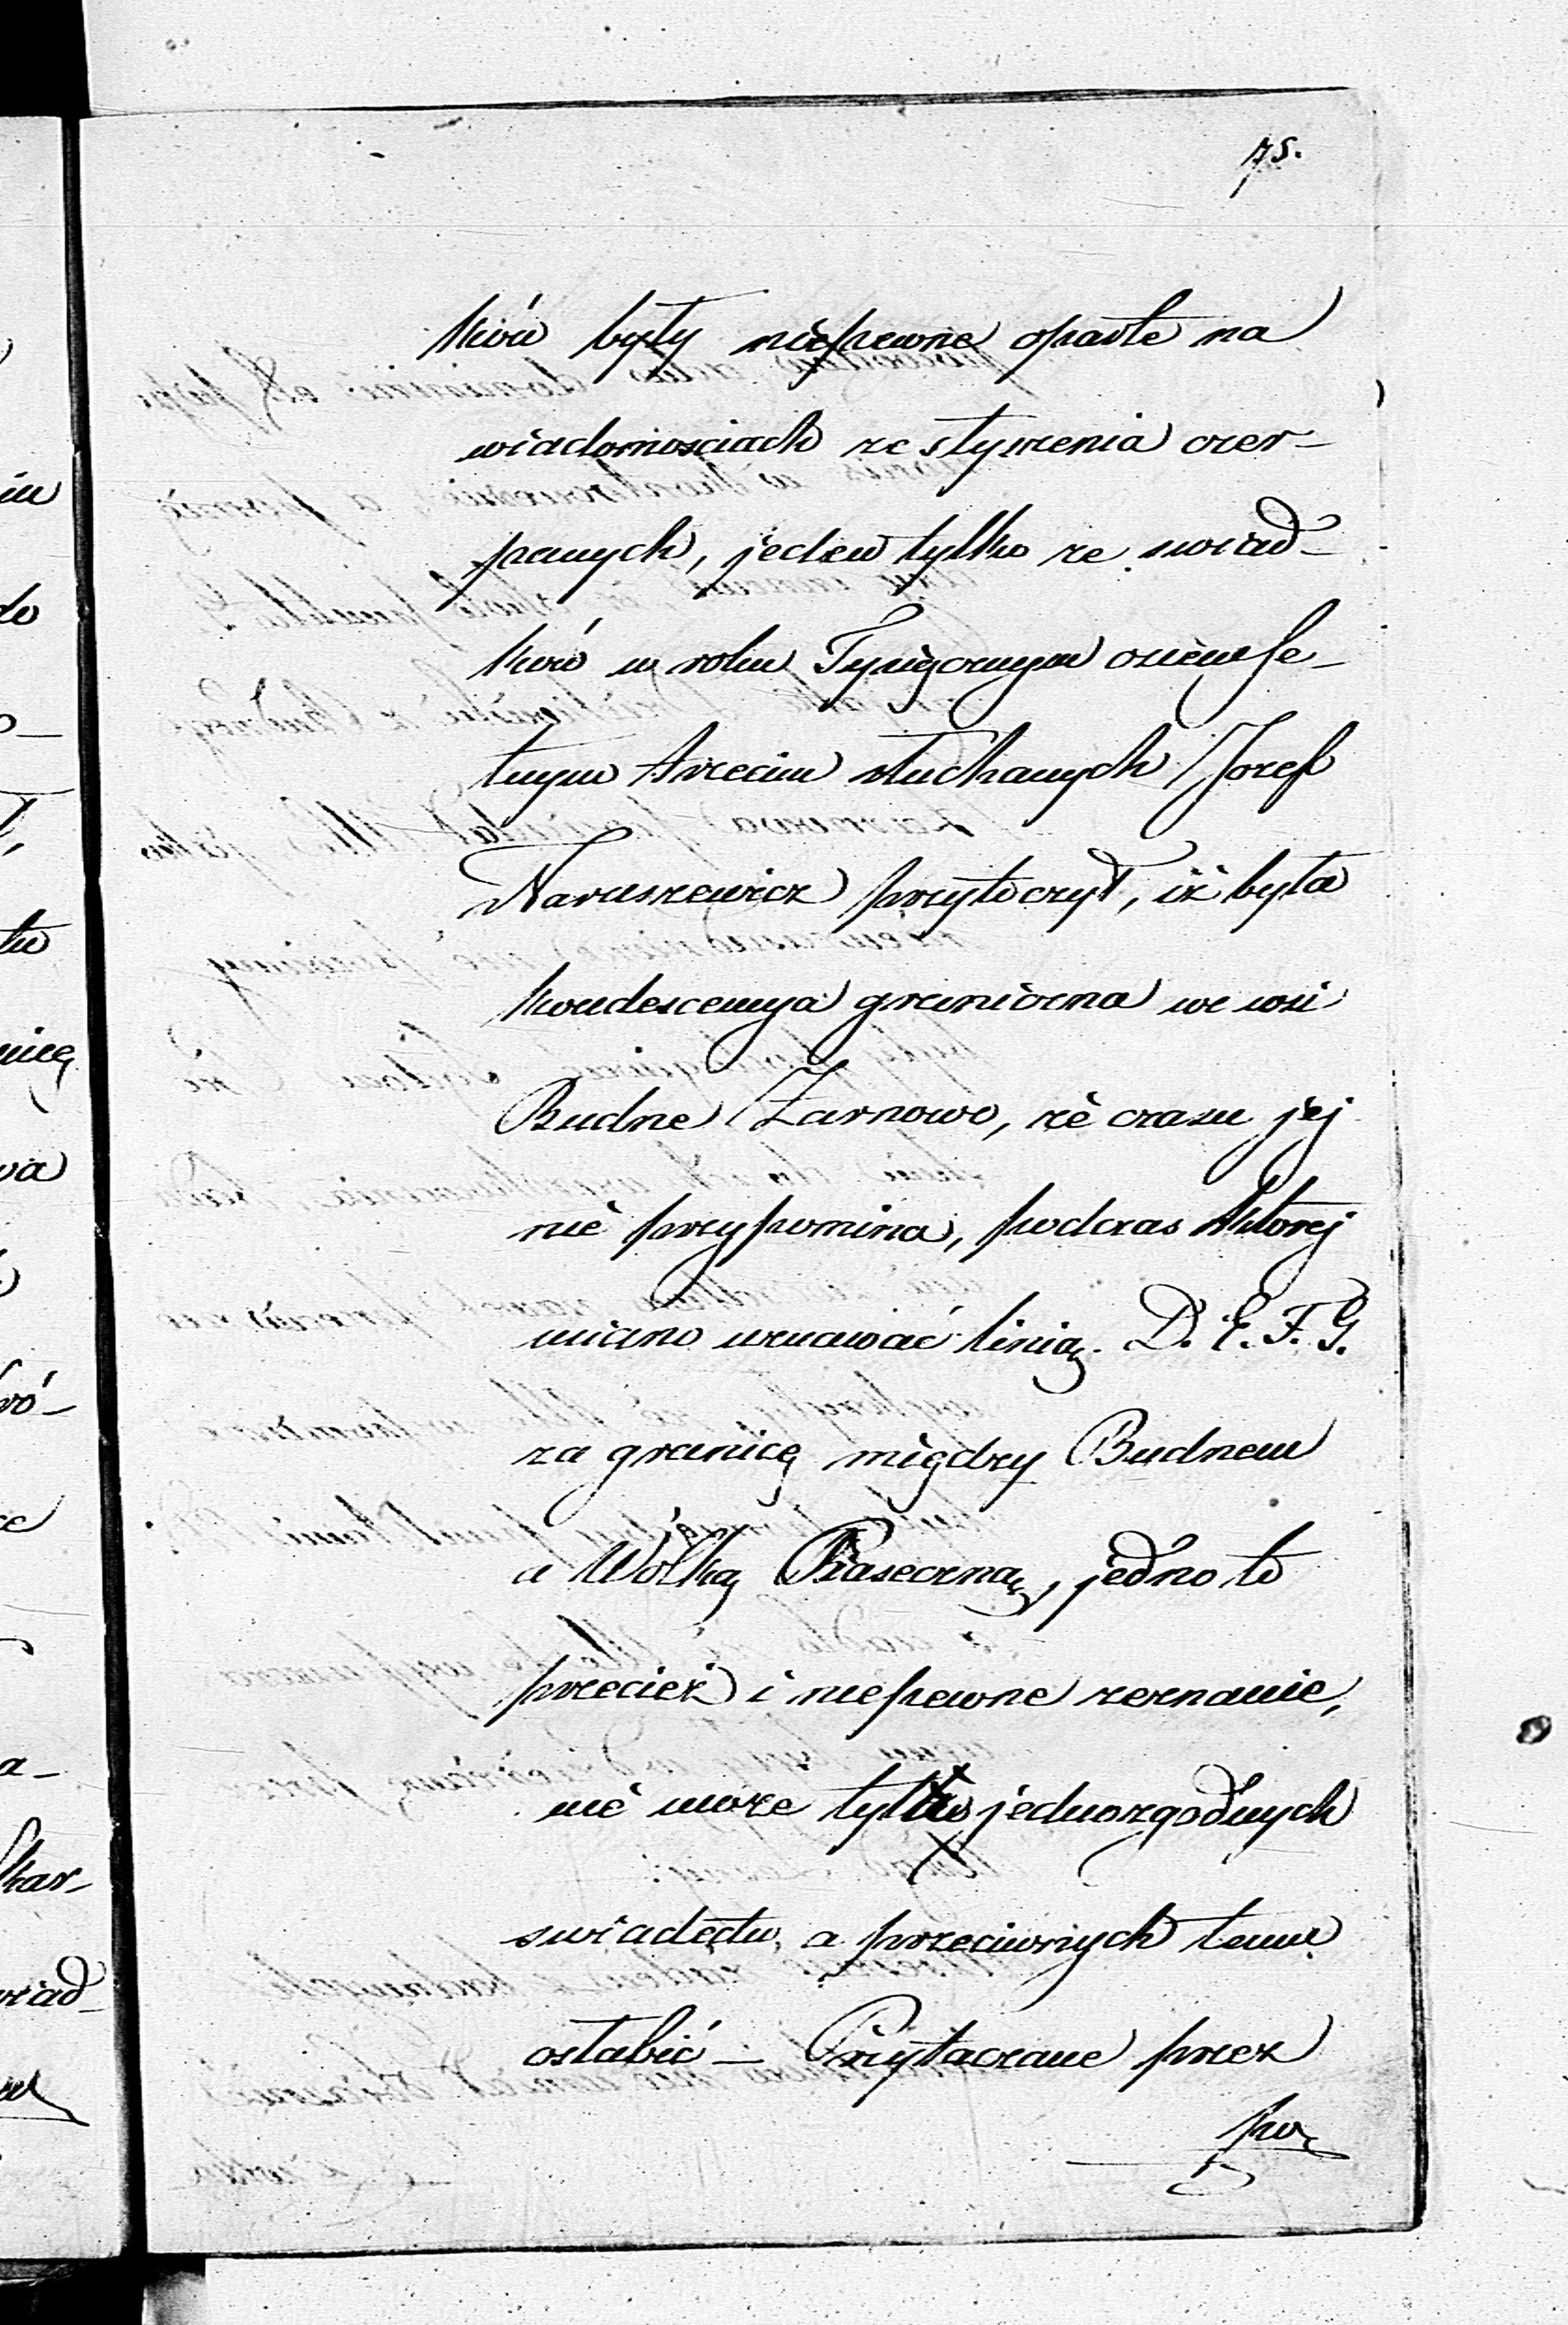 75.
ków były niepewne oparte na
wiadomosciach ze słyszenia czer-
panych, jeden tylko ze swiad-
ków w roku Tysiącznym ośmse-
tnym trzecim słuchanych Jozef
Naruszewicz przytoczył, iż była
kondescenya graniczna we wsi
Budne Żarnowo, że czasu jej
nie przypomina, podczas ktorej
miano uznawać linią D. E. F. G.
za granicę między Budnem
a Wólką Piaseczną, jedno to
przecież i niepewne zeznanie,
nie może tylko jednozgodnych
swiadectw, a przeciwnych temu
osłabić — Przytaczane przez
po